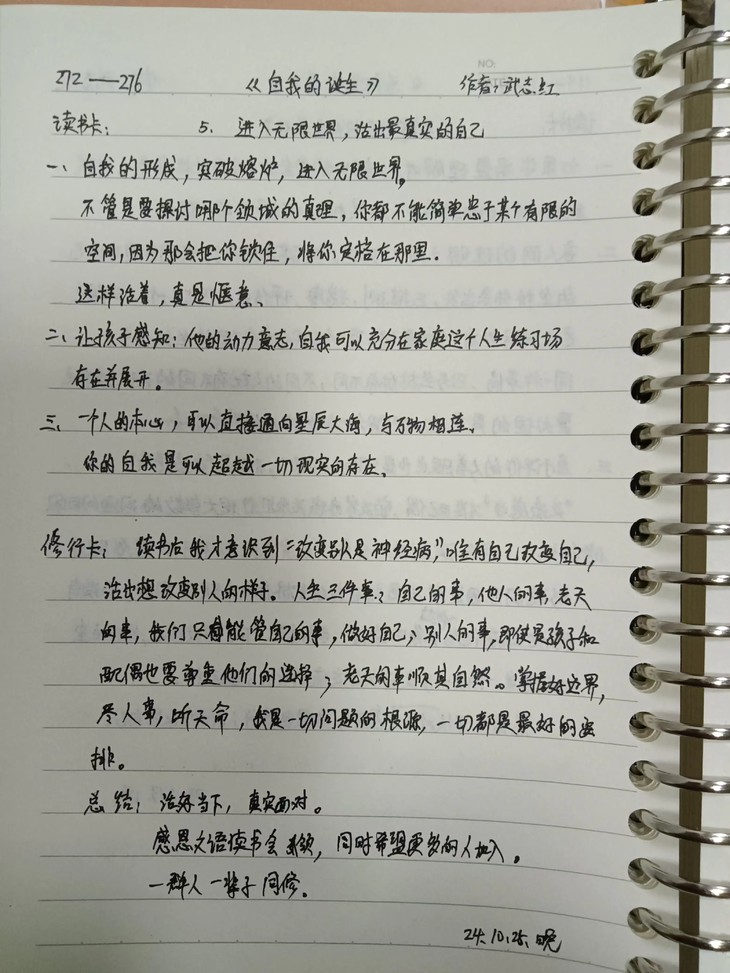 272——276 《自我的诞生》 作者:武志红
读书卡: 5. 进入无限世界,活出最真实的自己
一、自我的形成,突破熔炉,进入无限世界。
不管是要探讨哪个领域的真理,你都不能简单忠于某个有限的
空间,因为那会把你锁住,将你定格在那里.
这样活着,真是惬意.
二、让孩子感知:他的动力意志,自我可以充分在家庭这个人生练习场
存在并展开。
三、一个人的本心,可以直接通向星辰大海,与万物相连.
你的自我是可以超越一切现实的存在.
修行卡: 读书后我才意识到“改变别人是神经病”,唯有自己改变自己,
活出想改变别人的样子。人生三件事:自己的事,他人的事,老天
的事,我们只能管自己的事,做好自己;别人的事,即使是孩子和
配偶也要尊重他们的选择;老天的事顺其自然。掌握好边界,
尽人事,听天命,我是一切问题的根源,一切都是最好的安
排。
总结:活好当下,真实面对。
感恩文语读书会,同时希望更多的人加入。
一群人一辈子同修.
24.10.25.晚